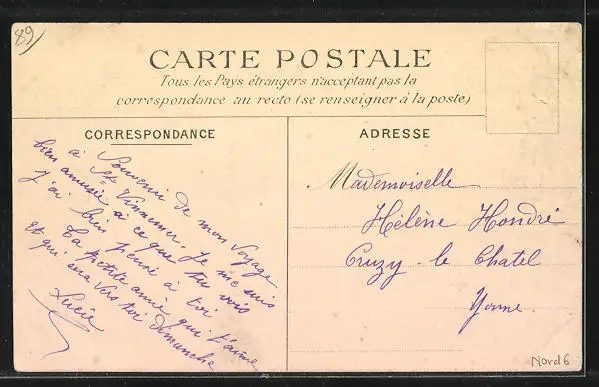 89
CARTE POSTALE
Tous les Pays étrangers n'acceptant pas la
correspondance au recto (se renseigner à la poste)
CORRESPONDANCE
Souvenir de mon voyage
à St Vinnemer. Je me suis
bien amusée à ce que tu vois
j'ai bien pensé à toi
Ta petite amie qui t'aime
et qui sera vers toi dimanche
Lucie
ADRESSE
Mademoiselle
Hélène Hondré
Cruzy-le Chatel
Yonne.
Nord 6